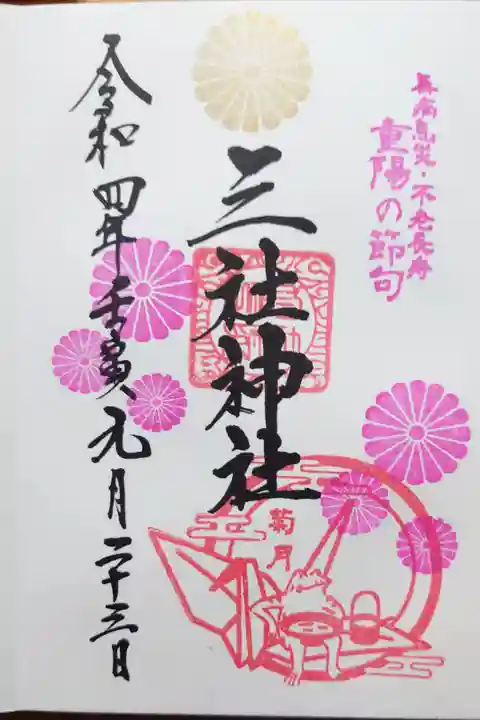 無病息災・不老長寿
重陽の節句
三社神社
菊月
令和四年壬寅九月二十三日